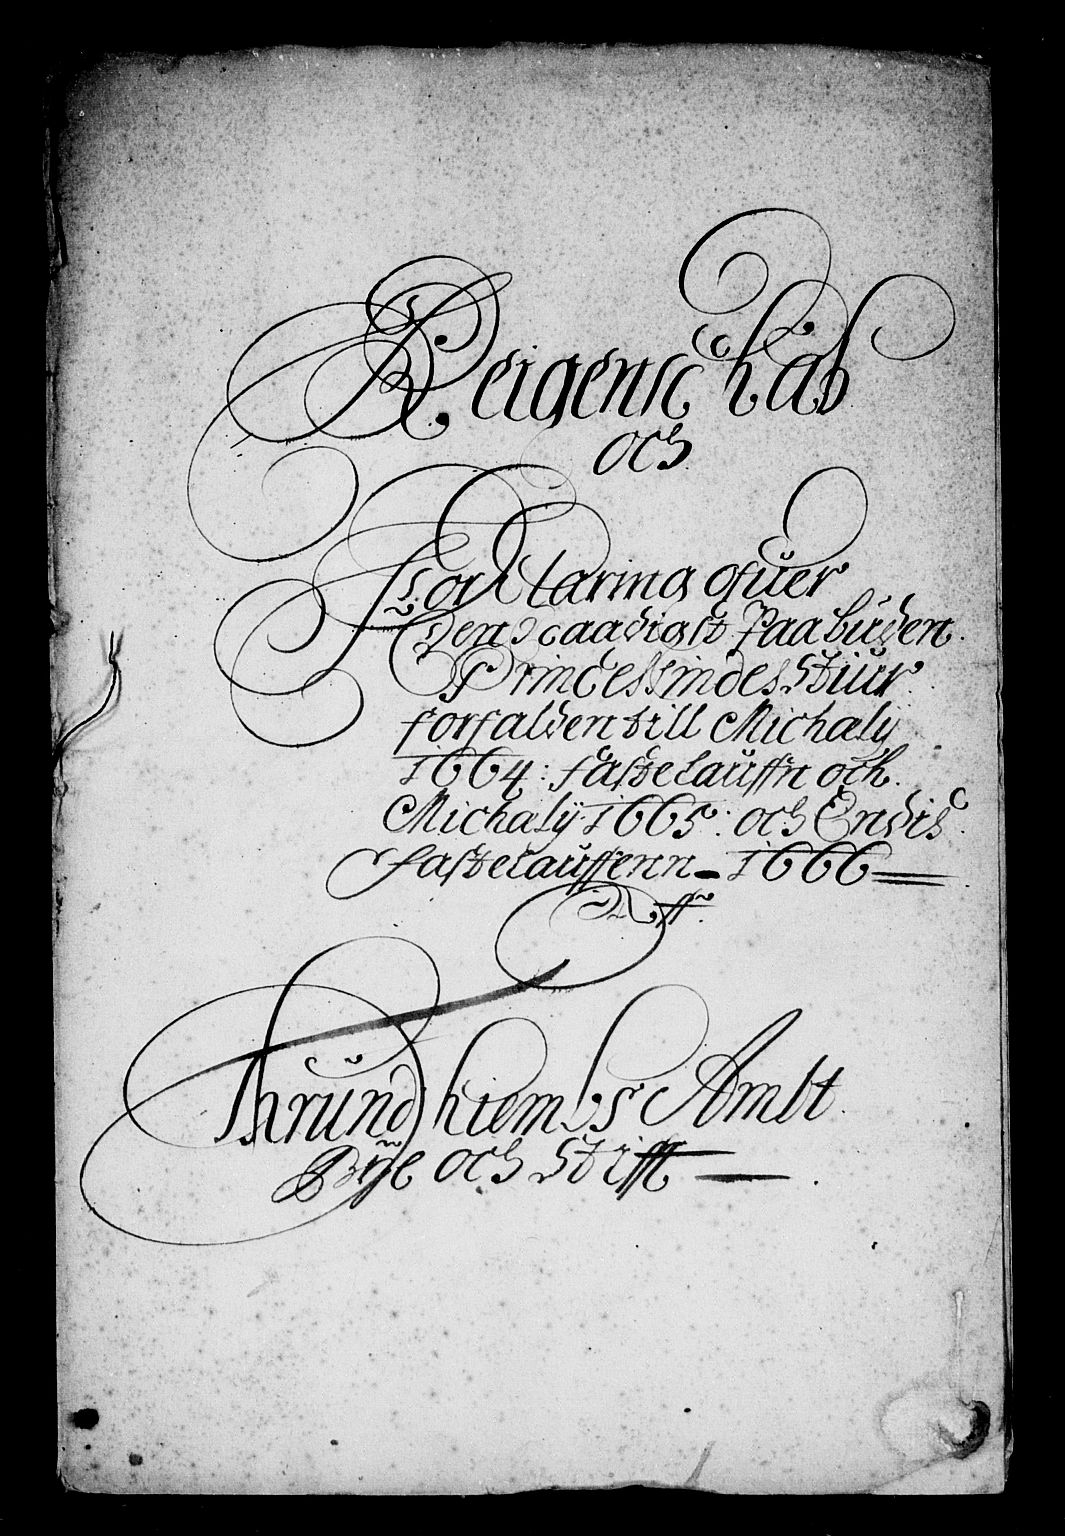 Reigenschab
och
Forklaring ofuer
Den Naadigst Paabuden
Princessindes Stiur
forfalden till Michaly
1664: fastelauffn och
Michaly 1665: och Endis
fastelauffenn 1666
Aff
Thrundhiembs Ambt
Bye och Stifft